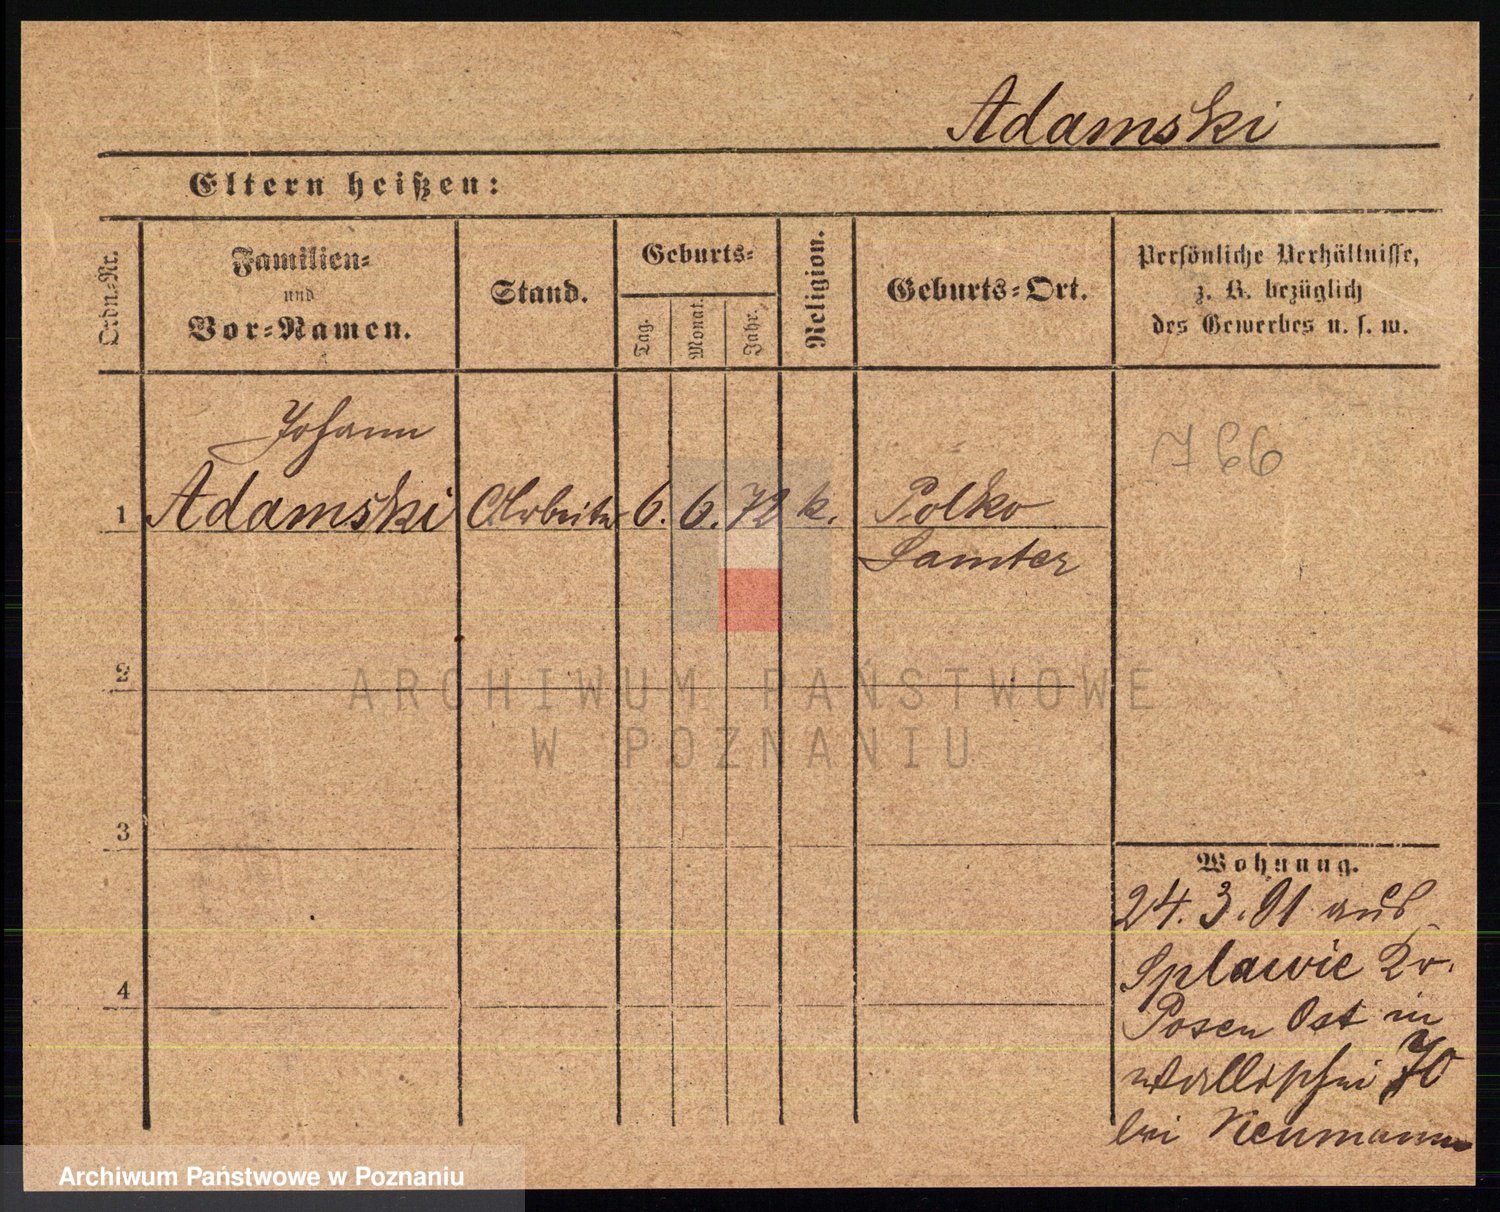 Adamski
Eltern heißen:
Ordn.-Nr.
Familien-
und
Vor-Namen.
Stand.
Geburts-
Tag.
Monat.
Jahr.
Religion.
Geburts-Ort.
Persönliche Verhältnisse,
z. B. bezüglich
des Gewerbes u. s. w.
Johann
1 Adamski Arbeiter 6. 6. 72 k. Polko
Samter
2
3
4
Wohnung.
24. 3. 91 aus
Splawie Kr.
Posen Ost in
70
bei Neumann
ARCHIWUM PAŃSTWOWE
W POZNANIU
Archiwum Państwowe w Poznaniu